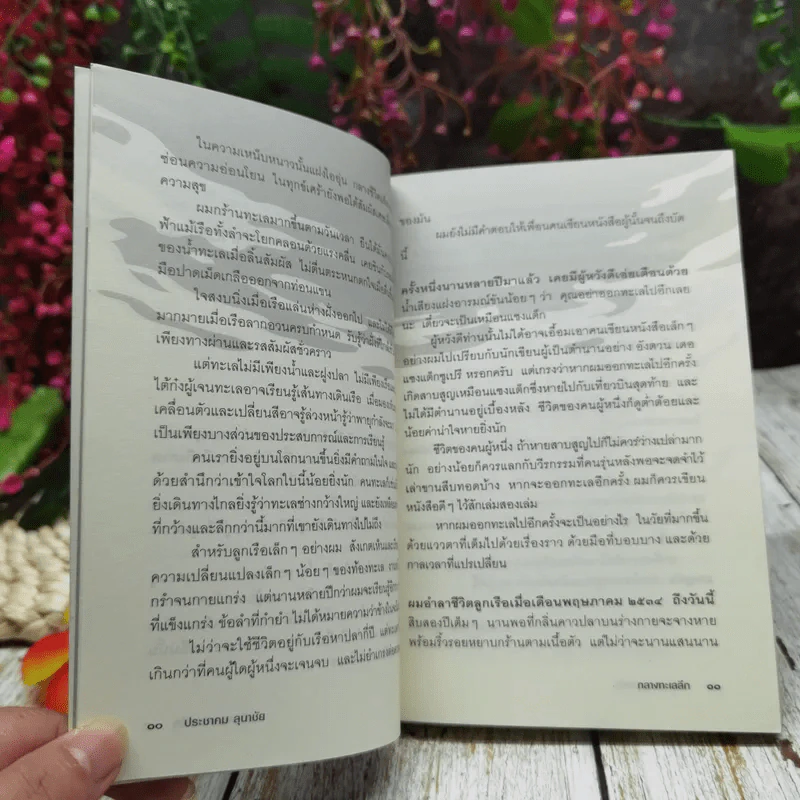 ในความเหน็บหนาวนั้นแฝงไออุ่น กลางชีวิต
ซ่อนความอ่อนโยน ในทุกข์เศร้ายังพอได้สัมผัส
ความสุข
ผมกร้านทะเลมากขึ้นตามวันเวลา ยืนได้
ฟ้าแม้เรือทั้งลำจะโยกคลอนด้วยแรงคลื่น เคยชิน
ของน้ำทะเลเมื่อลิ้นสัมผัส ไม่ตื่นตระหนกตกใจเมื่อ
มือปาดเม็ดเกลือออกจากท่อนแขน
ใจสงบนิ่งเมื่อเรือแล่นห่างฝั่งออกไป และ
มากมายเมื่อเรือลากอวนครบกำหนด รับรู้ว่าฝั่ง
เพียงทางผ่านและรสสัมผัสชั่วคราว
แต่ทะเลไม่มีเพียงน้ำและฝูงปลา ไม่มีเพียง
ไต้ก๋งผู้เจนทะเลอาจเรียนรู้เส้นทางเดินเรือ เมื่อมอง
เคลื่อนตัวและเปลี่ยนสีอาจรู้ล่วงหน้ารู้ว่าพายุกำลัง
เป็นเพียงบางส่วนของประสบการณ์และการเรียนรู้
คนเรายิ่งอยู่บนโลกนานขึ้นยิ่งมีคำถามในใจ
ด้วยสำนึกว่าเข้าใจโลกใบนี้น้อยยิ่งนัก คนทะเล
ยิ่งเดินทางไกลยิ่งรู้ว่าทะเลช่างกว้างใหญ่ และยัง
ที่กว้างและลึกกว่านี้มากที่เขายังเดินทางไปไม่ถึง
สำหรับลูกเรือเล็กๆ อย่างผม สังเกตเห็นและ
ความเปลี่ยนแปลงเล็กๆ น้อยๆ ของท้องทะเล
กรำจนกายแกร่ง แต่นานหลายปีกว่าผมจะเรียนรู้
ที่แข็งแกร่ง ข้อลำที่กำยำ ไม่ได้หมายความว่าข้างใน
ไม่ว่าจะใช้ชีวิตอยู่กับเรือหาปลากี่ปี
เกินกว่าที่คนผู้ใดผู้หนึ่งจะเจนจบ และไม่ยำเกรง
๑๐ ประชาคม ลุนาชัย
ของมัน
ผมยังไม่มีคำตอบให้เพื่อนคนเขียนหนังสือผู้นั้นจนถึงบัด
นี้
ครั้งหนึ่งนานหลายปีมาแล้ว เคยมีผู้หวังดีเอ่ยเตือนด้วย
น้ำเสียงแฝงอารมณ์ขันน้อยๆ ว่า คุณอย่าออกทะเลไปอีกเลย
นะ เดี๋ยวจะเป็นเหมือนแซงแต็ก
ผู้หวังดีท่านนั้นไม่ได้อาจเอื้อมเอาคนเขียนหนังสือเล็กๆ
อย่างผมไปเปรียบกับนักเขียนผู้เป็นตำนานอย่าง อังตวน เดอ
แซงแต็กซูเปรี หรอกครับ แต่เกรงว่าหากผมออกทะเลไปอีกครั้ง
เกิดสาบสูญเหมือนแซงแต็กซึ่งหายไปกับเที่ยวบินสุดท้าย และ
ไม่ได้มีตำนานอยู่เบื้องหลัง ชีวิตของคนผู้หนึ่งก็ดูต่ำต้อยและ
น้อยค่าน่าใจหายยิ่งนัก
ชีวิตของคนผู้หนึ่ง ถ้าหายสาบสูญไปก็ไม่ควรว่างเปล่ามาก
นัก อย่างน้อยก็ควรแลกกับวีรกรรมที่คนรุ่นหลังพอจะจดจำไว้
เล่าขานสืบทอดบ้าง หากจะออกทะเลอีกครั้ง ผมก็ควรเขียน
หนังสือดีๆ ไว้สักเล่มสองเล่ม
หากผมออกทะเลไปอีกครั้งจะเป็นอย่างไร ในวัยที่มากขึ้น
ด้วยแววตาที่เต็มไปด้วยเรื่องราว ด้วยมือที่บอบบาง และด้วย
กาลเวลาที่แปรเปลี่ยน
ผมอำลาชีวิตลูกเรือเมื่อเดือนพฤษภาคม ๒๕๓๔ ถึงวันนี้
สิบสองปีเต็มๆ นานพอที่กลิ่นคาวปลาบนร่างกายจะจางหาย
พร้อมริ้วรอยหยาบกร้านตามเนื้อตัว แต่ไม่ว่าจะนานแสนนาน
กลางทะเลลึก ๑๑